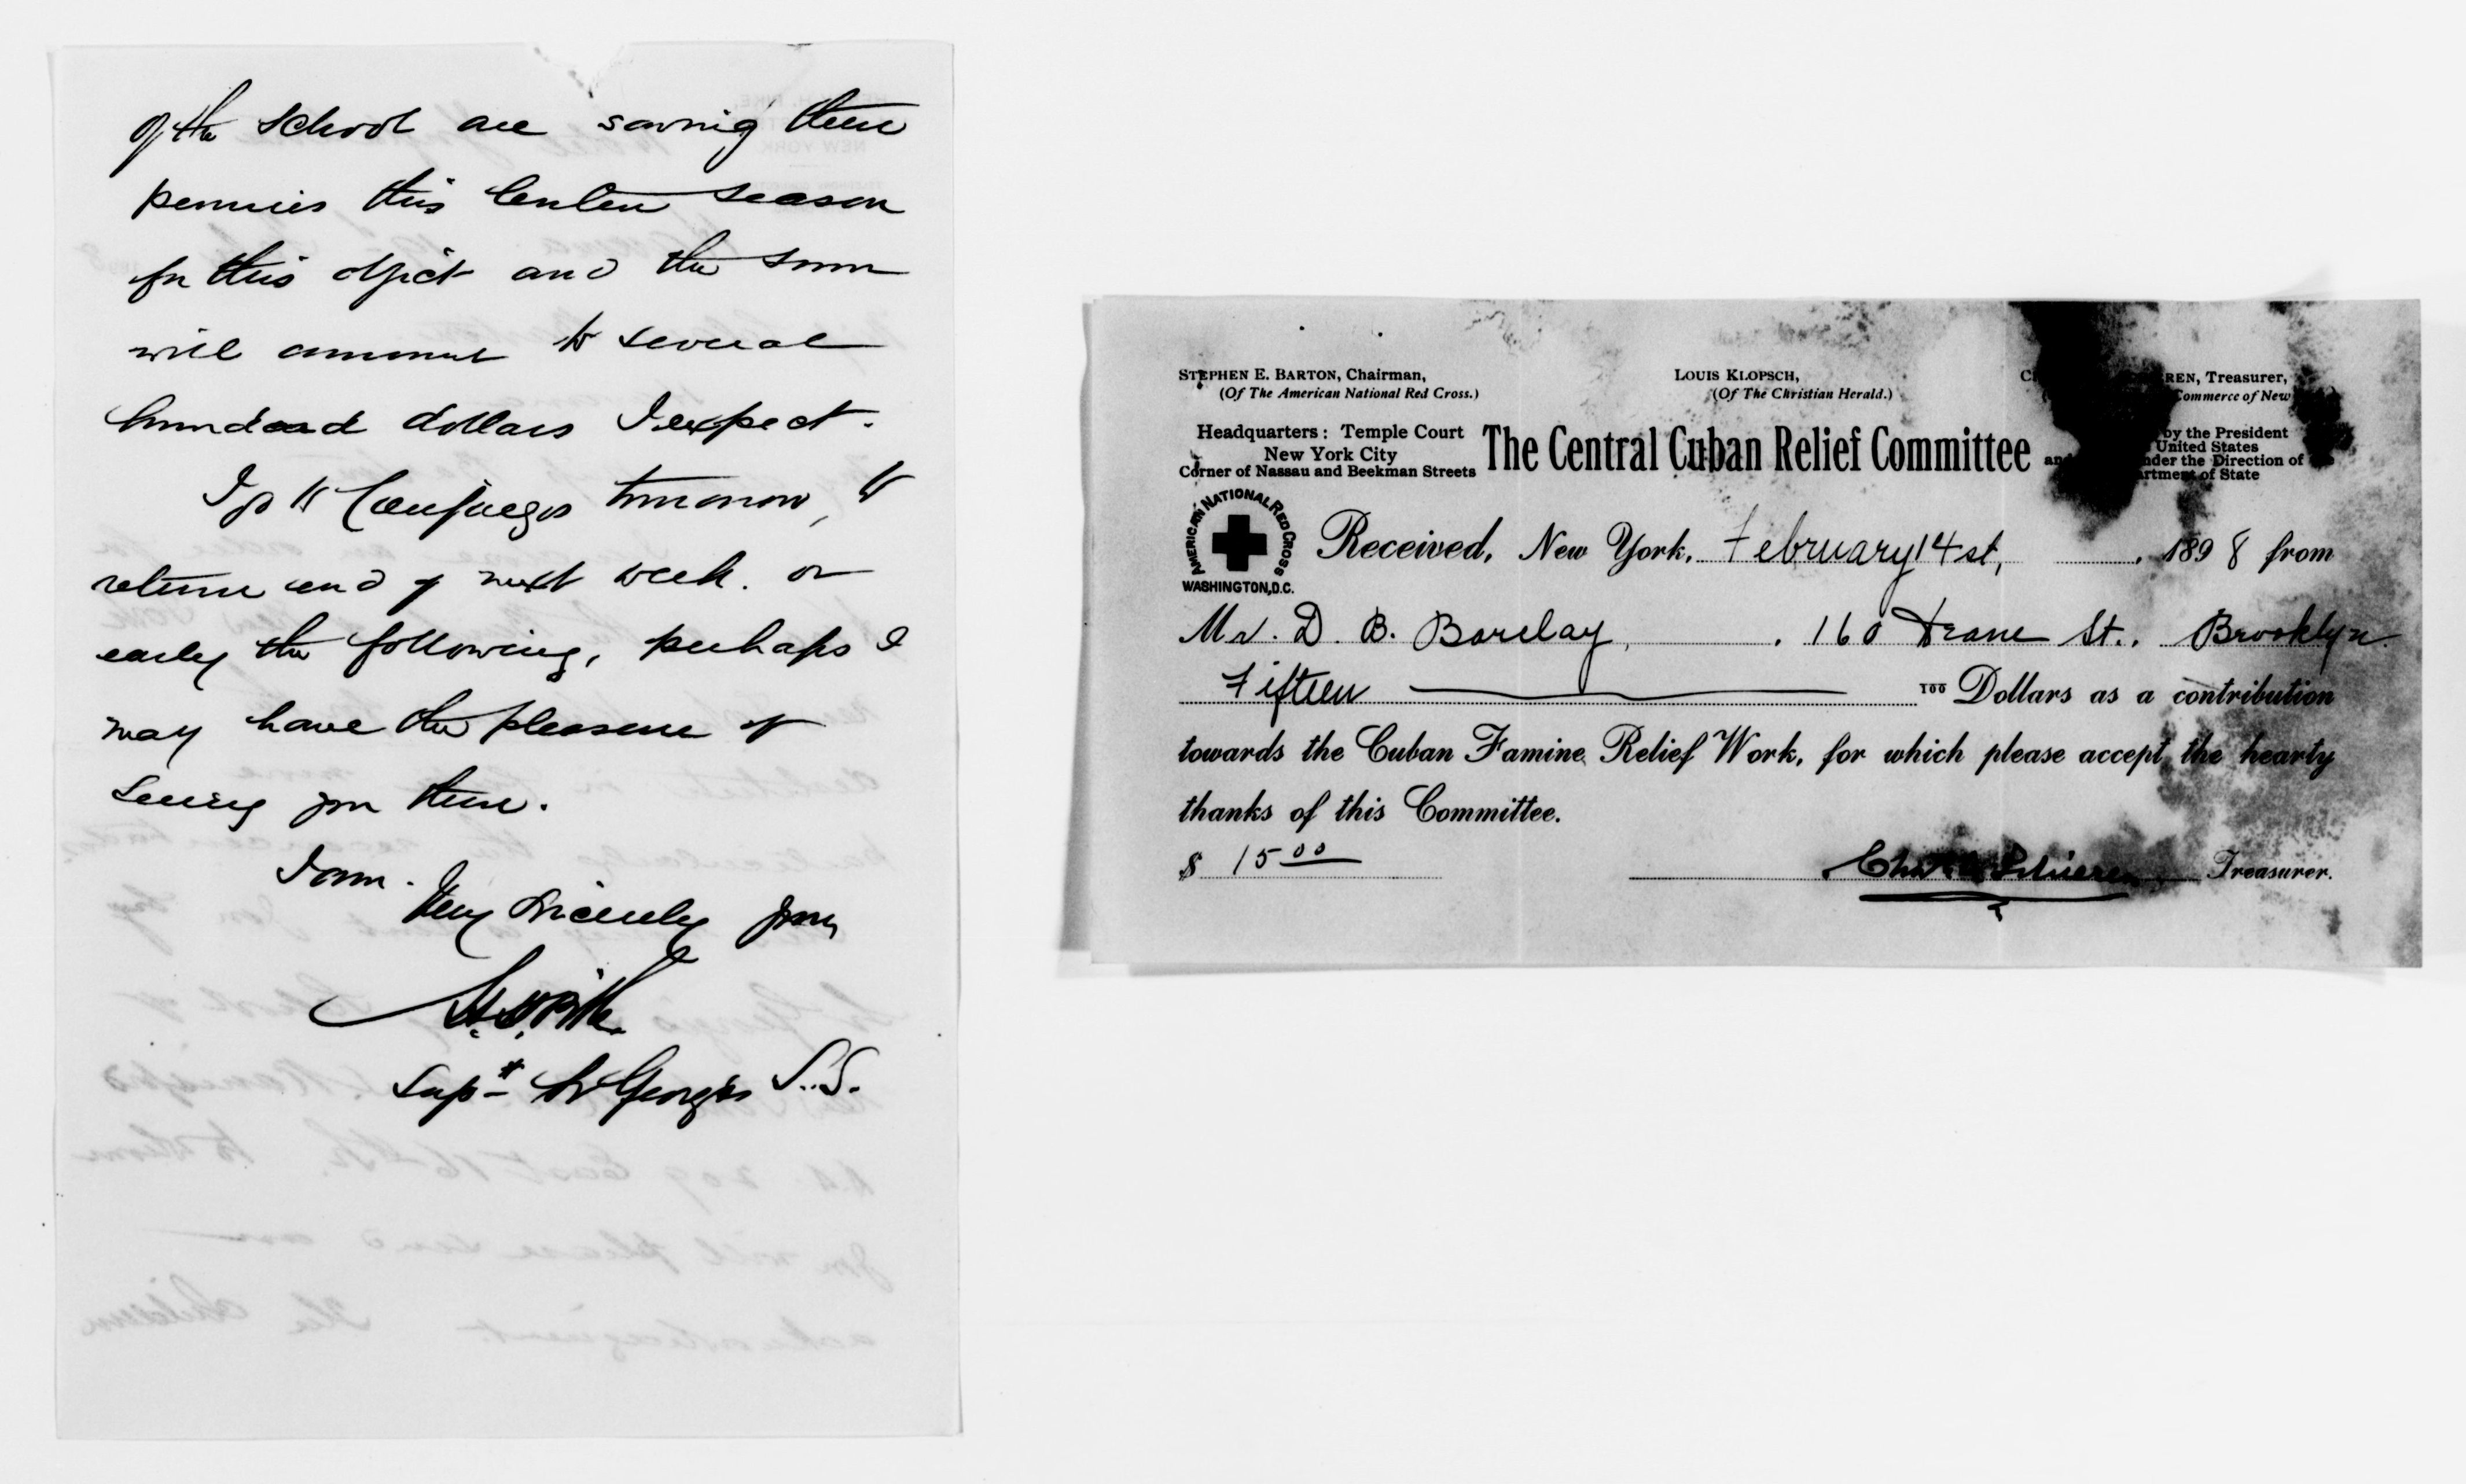 of the school are saving their
pennies this Lenten season
for this object and the sum
will amount to several
hundred dollars I expect.
I go to Cienfuegos tomorrow, to
return end of next week. or
early the following, perhaps I
may have the pleasure of
seeing you there.
I am.
Very Sincerely yours
Supt St Georges S.S.
STEPHEN E. BARTON, Chairman,
(Of The American National Red Cross.)
LOUIS KLOPSCH,
(Of The Christian Herald.)
REN, Treasurer,
Commerce of New
Headquarters: Temple Court
New York City
Corner of Nassau and Beekman Streets
The Central Cuban Relief Committee
by the President
United States
under the Direction of
of State
AMERICAN NATIONAL RED CROSS
WASHINGTON, D.C.
Received, New York, February 14st, 1898 from
Mr. D. B. Barclay, 160 St., Brooklyn.
Fifteen 100 Dollars as a contribution
towards the Cuban Famine Relief Work, for which please accept the hearty
thanks of this Committee.
$ 15 00
Chas A Schieren Treasurer.